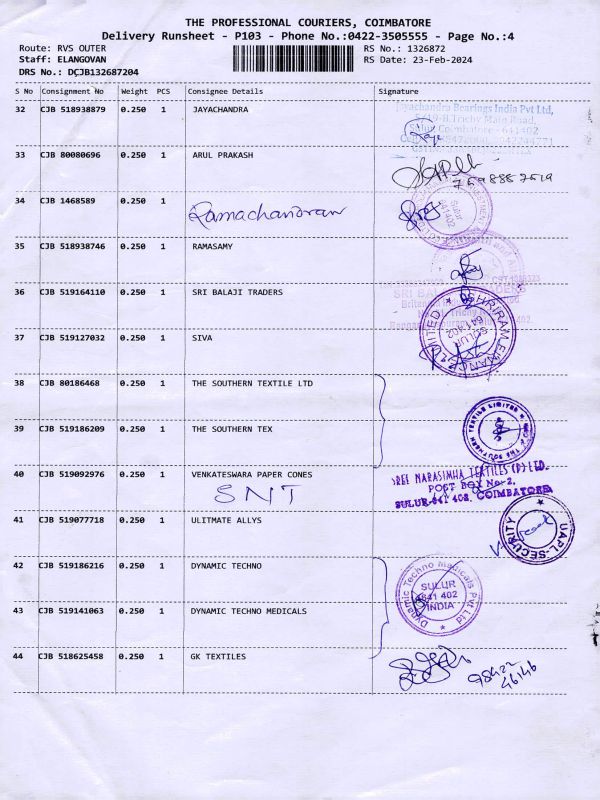 THE PROFESSIONAL COURIERS, COIMBATORE
Delivery Runsheet - P103 - Phone No.:0422-3505555 - Page No.:4
Route: RVS OUTER
RS No.: 1326872
Staff: ELANGOVAN
RS Date: 23-Feb-2024
DRS No.: DCJB132687204
S No Consignment No Weight PCS Consignee Details Signature
32 CJB 518938879 0.250 1 JAYACHANDRA
Jayachandra Bearings India Pvt Ltd,
Trichy Main Road,
Sulur Coimbatore - 641402
33 CJB 80080696 0.250 1 ARUL PRAKASH
34 CJB 1468589 0.250 1
Ramachandran
SULUR
641 402
35 CJB 518938746 0.250 1 RAMASAMY
36 CJB 519164110 0.250 1 SRI BALAJI TRADERS
SRI BALAJI TRADERS
37 CJB 519127032 0.250 1 SIVA
SHRIRAM FINANCE LIMITED
SULUR
641 402
38 CJB 80186468 0.250 1 THE SOUTHERN TEXTILE LTD
39 CJB 519186209 0.250 1 THE SOUTHERN TEX
40 CJB 519092976 0.250 1 VENKATESWARA PAPER CONES
SNT
SREE NARASIMHA TEXTILES (P) LTD.
POST BOX No. 2,
SULUR-641 402, COIMBATORE
41 CJB 519077718 0.250 1 ULITMATE ALLYS
UAPL-SECURITY
42 CJB 519186216 0.250 1 DYNAMIC TECHNO
Dynamic Techno Medicals Pvt Ltd
SULUR
641 402
INDIA
43 CJB 519141063 0.250 1 DYNAMIC TECHNO MEDICALS
44 CJB 518625458 0.250 1 GK TEXTILES
98422
46146